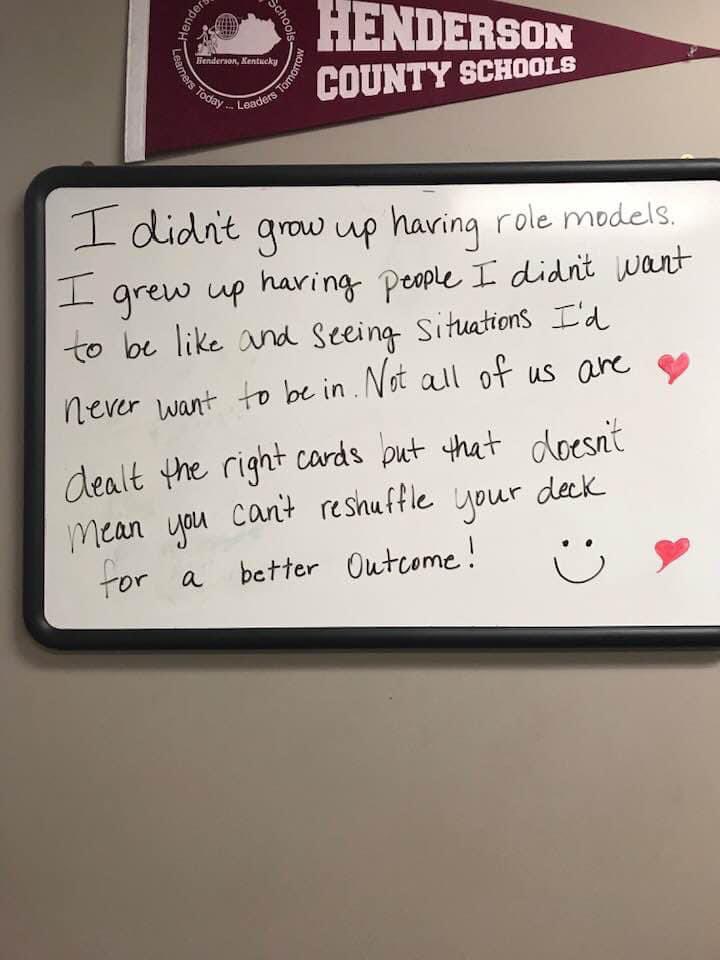 Henderson Schools
Henderson, Kentucky
Learners Today ... Leaders Tomorrow
HENDERSON
COUNTY SCHOOLS
I didn't grow up having role models.
I grew up having people I didn't want
to be like and seeing situations I'd
never want to be in. Not all of us are
dealt the right cards but that doesn't
mean you can't reshuffle your deck
for a better outcome!